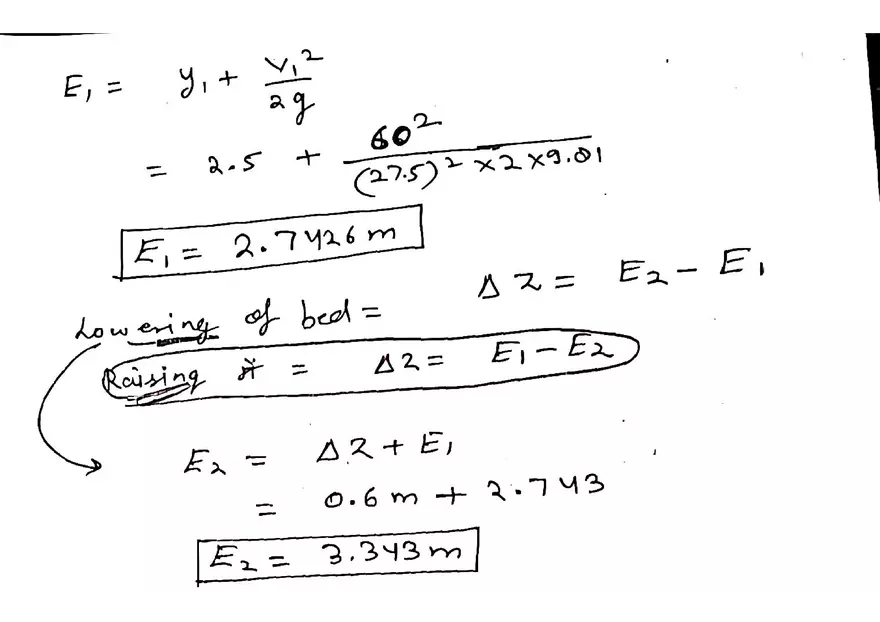 E₁ = y₁ + V₁²/2g
= 2.5 + 60²/(27.5)² × 2 × 9.81
E₁ = 2.7426 m
Lowering of bed = ΔZ = E₂ - E₁
Raising = ΔZ = E₁ - E₂
E₂ = ΔZ + E₁
= 0.6 m + 2.743
E₂ = 3.343 m